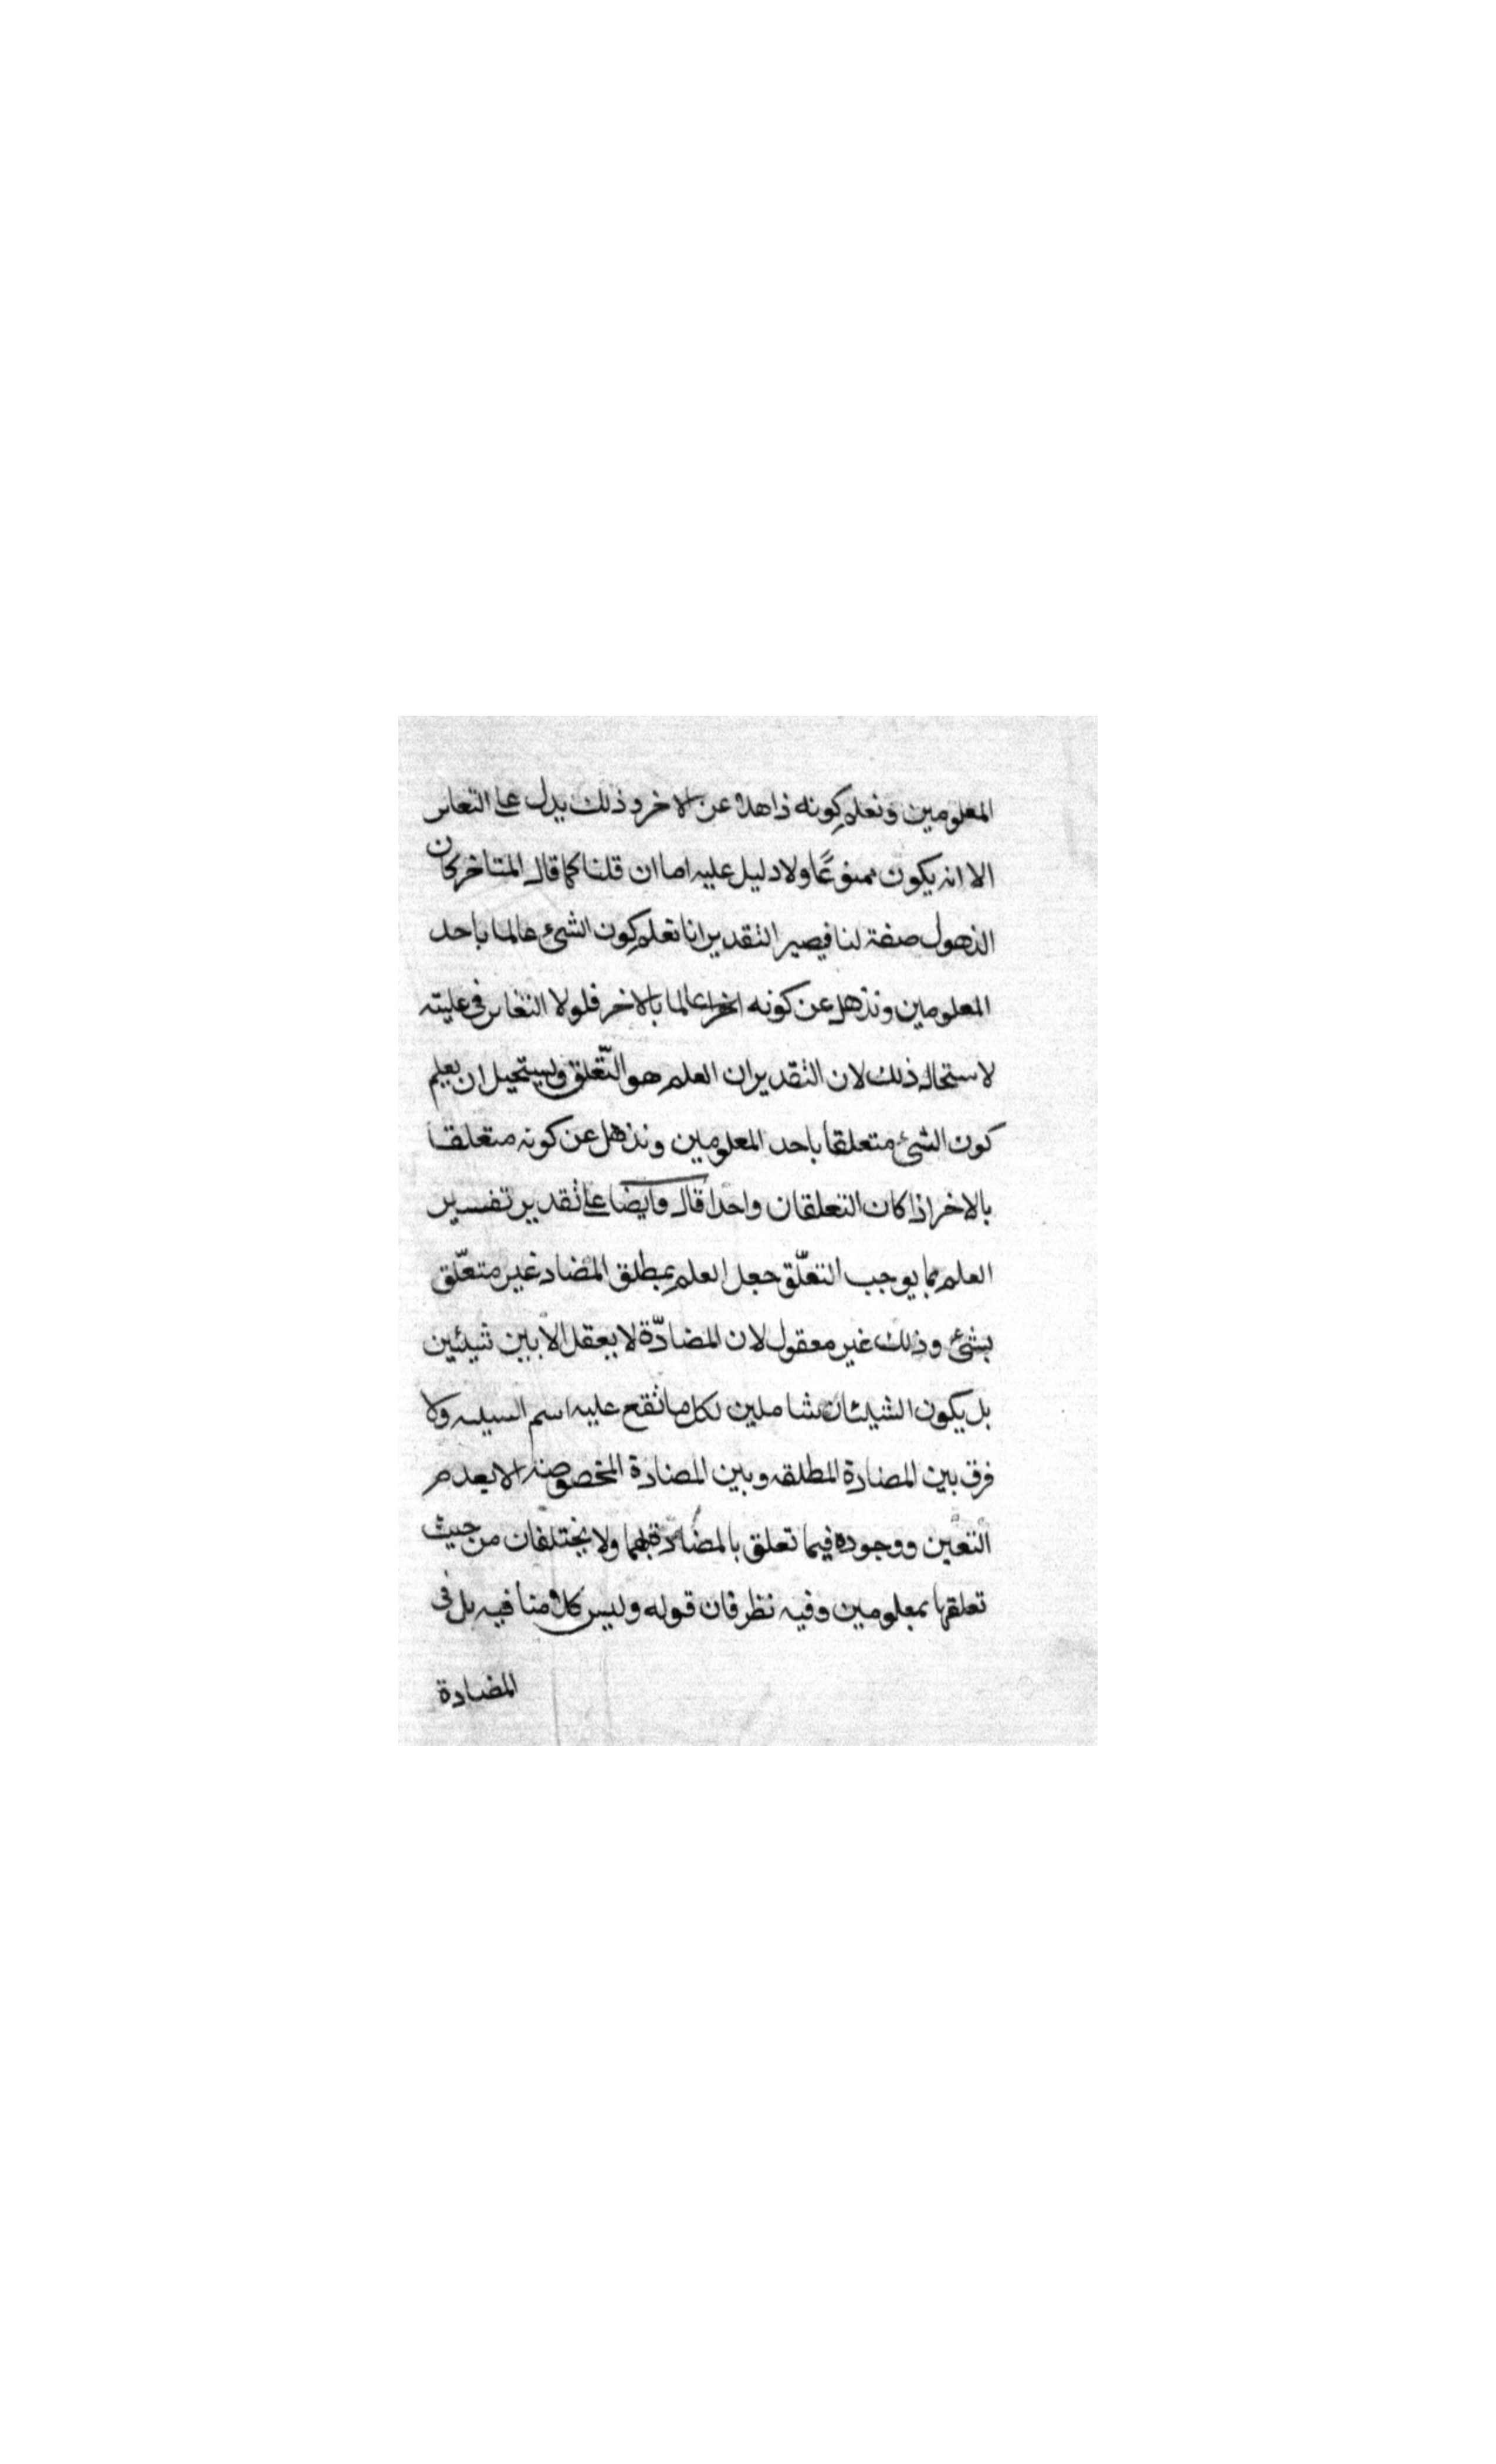 المعلومين ونعلم كونه ذاهلا عن الاخر وذلك يدل على التغاير
الا انه يكون ممنوعًا ولا دليل عليه اما ان قلنا كما قال المتاخر كان
الذهول صفة لنا فيصير التقدير انا نعلم كون الشئ عالما باحد
المعلومين ونذهل عن كونه عالما بالاخر فلولا التغاير في
لاستحال ذلك لان التقدير ان العلم هو التّعلق ويستحيل ان يعلم
كون الشئ متعلقا باحد المعلومين ونذهل عن كونه متعلقا
بالاخر اذا كان التعلقان واحدا قال وايضا على تقدير تفسير
العلم بما يوجب التعلّق جعل العلم بمطلق المضاد غير متعلّق
بشئ وذلك غير معقول لان المضادّة لا يعقل الا بين شيئين
بل يكون الشيئان شاملين لكل ما تقع عليه اسم ولا
فرق بين المضادة المطلقه وبين المضادة المخصوصة الا بعدم
التعين ووجوده فيما تعلق بالمضادة بهما ولا يختلفان من حيث
تعلقها بمعلومين وفيه نظر فان قوله وليس كلامنا فيه بل في
المضادة